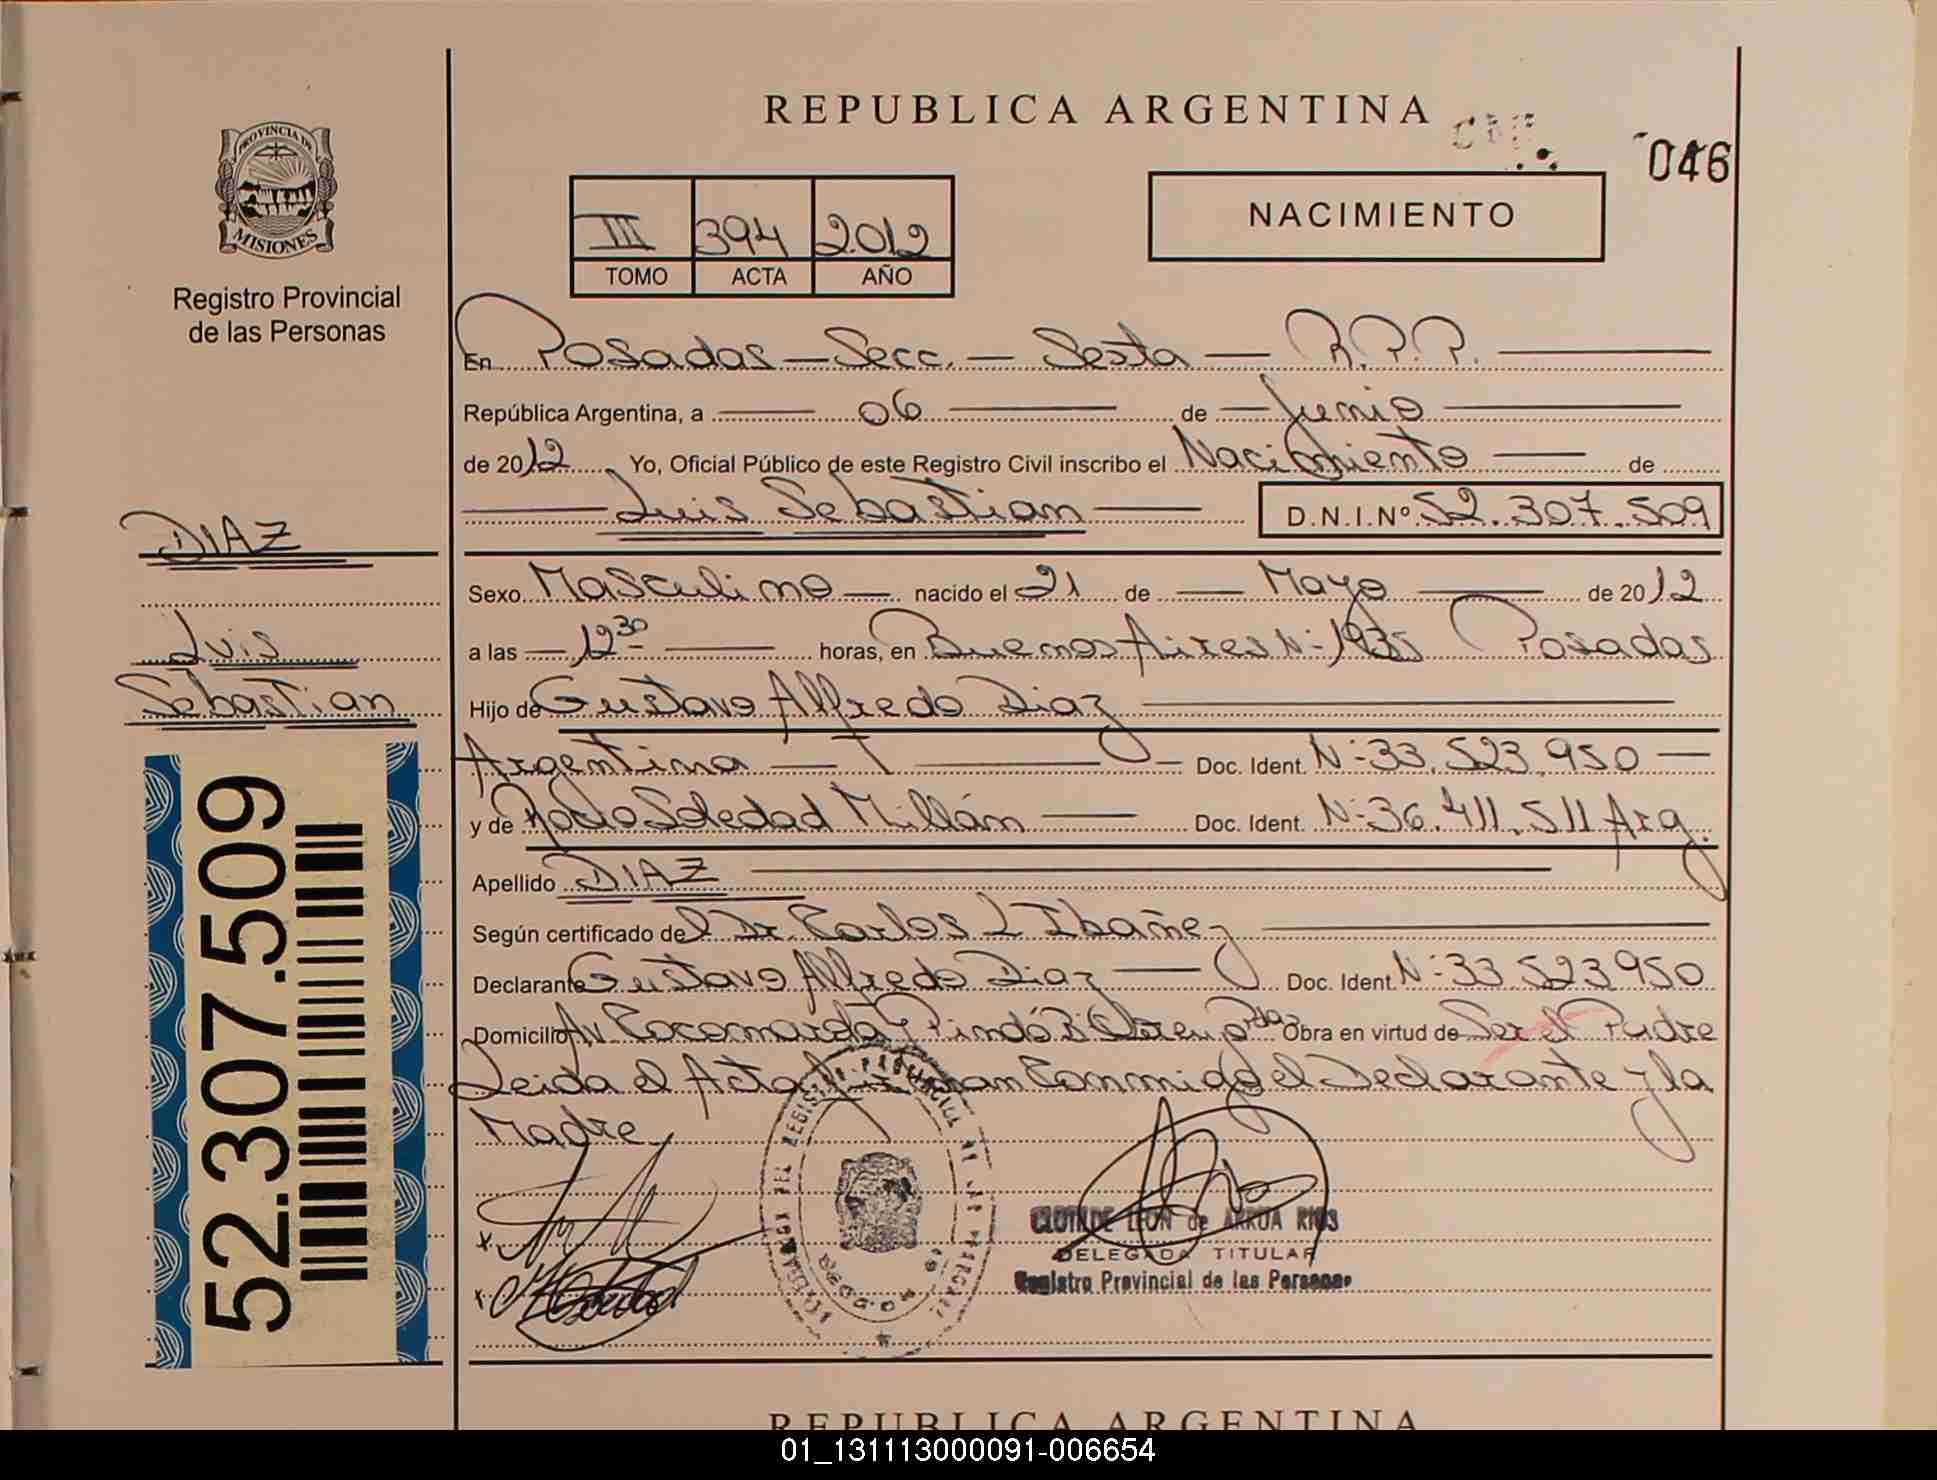 REPUBLICA ARGENTINA
046
PROVINCIA DE
MISIONES
Registro Provincial
de las Personas
III 394 2012
TOMO ACTA AÑO
NACIMIENTO
En Posadas — Secc. — Sexta — R.P.P.
República Argentina, a 06 de Junio
de 2012 Yo, Oficial Público de este Registro Civil inscribo el Nacimiento de
Luis Sebastian D.N.I.Nº 52.307.509
DIAZ
Luis
Sebastian
Sexo Masculino nacido el 21 de Mayo de 2012
a las 12 30 horas, en Buenos Aires N: 1935 Posadas
Hijo de Gustavo Alfredo Diaz
Argentina Doc. Ident. N: 33.523.950
y de Rocio Soledad Millán Doc. Ident. N: 36.411.511 Arg.
Apellido DIAZ
Según certificado del Dr. Carlos L Ibañez
Declarante Gustavo Alfredo Diaz Doc. Ident. N: 33 523 950
Domicilio Av Cocomarola y Pindó Obra en virtud de Ser el Padre
Leida el Acta Firman Conmigo el Declarante y la
Madre
52.307.509
CLOTILDE LEON de ARRUA RIOS
DELEGADA TITULAR
Registro Provincial de las Personas
REPUBLICA ARGENTINA
01_131113000091-006654